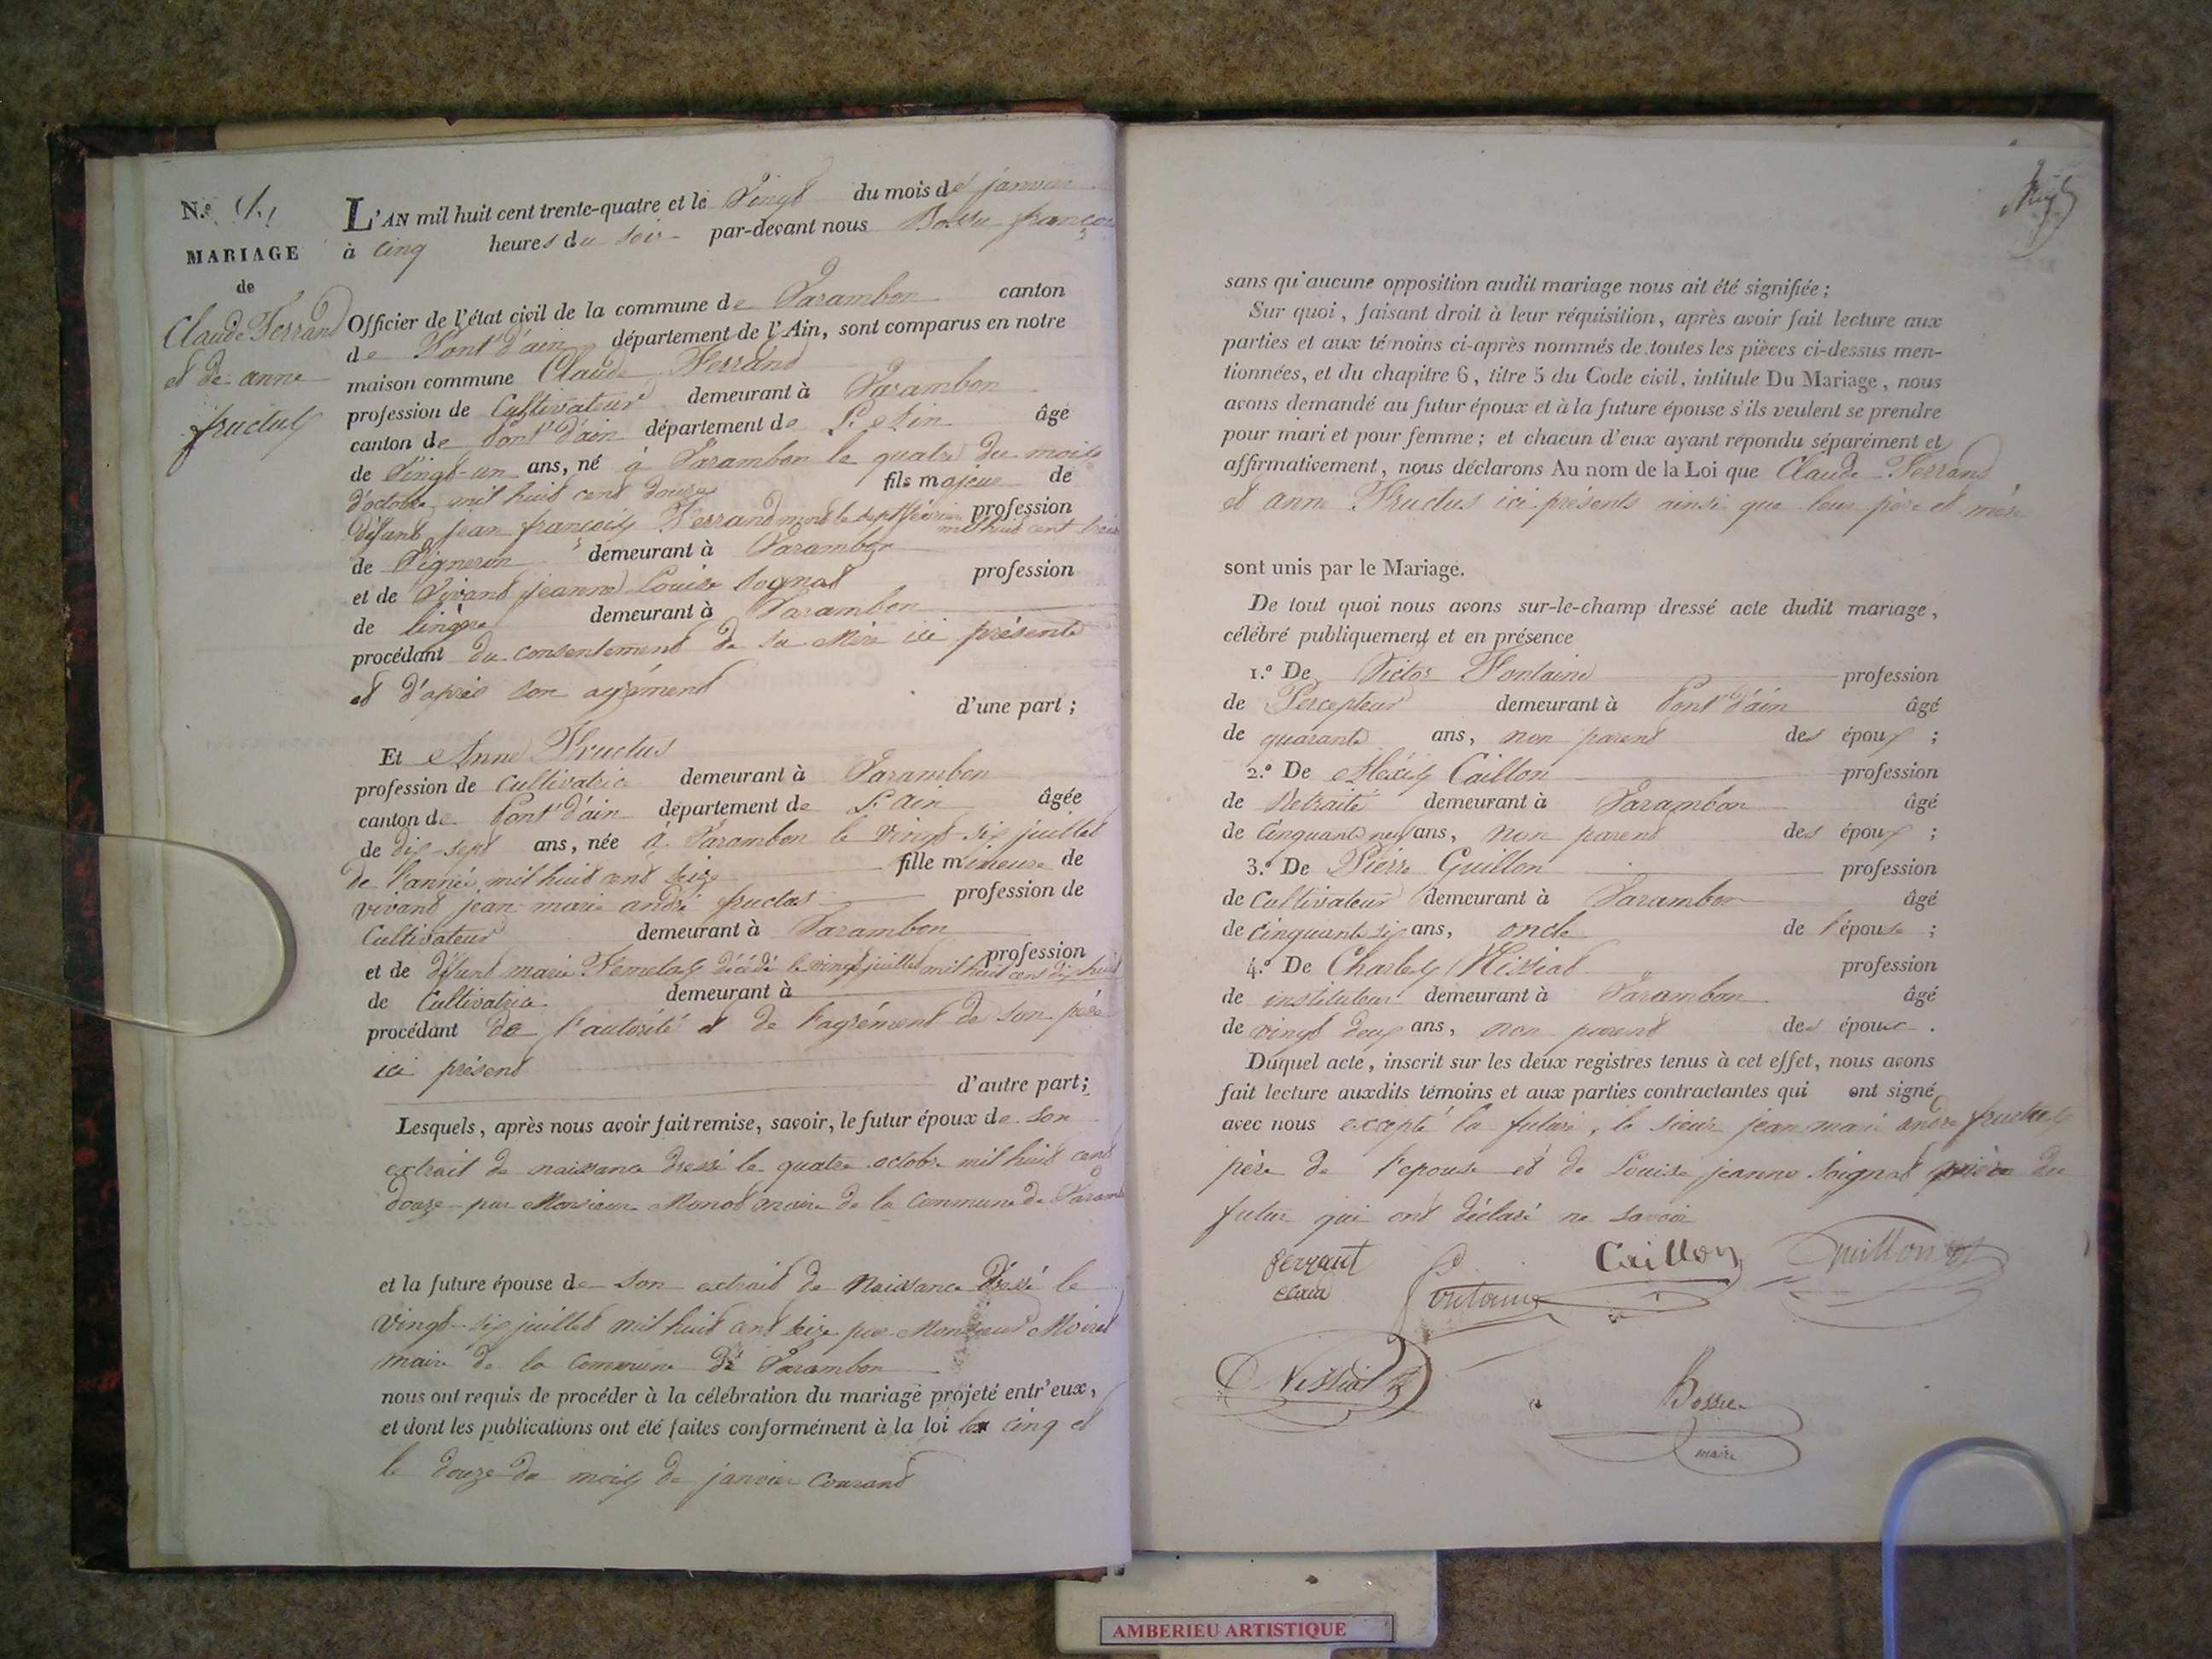 N.º
MARIAGE
de
Claude Ferrand
et de anne
fructus
L'AN mil huit cent trente-quatre et le Vingt du mois de janvier
à cinq heures du soir par-devant nous Bossu françois
Officier de l'état civil de la commune de Varambon canton
de Pont d'ain département de l'Ain, sont comparus en notre
maison commune Claude Ferrand
profession de Cultivateur demeurant à Varambon
canton de Pont d'ain département de L'Ain âgé
de Vingt-un ans, né à Varambon le quatre du mois
d'octobre mil huit cent douze fils majeur de
défunt jean françois Ferrand mort le sept février mil huit cent profession
de Vigneron demeurant à Varambon
et de Vivant jeanne Louise Sognat profession
de lingère demeurant à Varambon
procédant du consentement de sa Mère ici présente
et d'après son agrément
d'une part ;
Et Anne Fructus
profession de Cultivatrice demeurant à Varambon
canton de Pont d'ain département de L'ain âgée
de dix-sept ans, née à Varambon le vingt-six juillet
de l'année mil huit cent seize fille mineure de
vivant jean marie andré fructus profession de
Cultivateur demeurant à Varambon
et de défunt marie Femelas décédé le vingt juillet mil huit cent dix huit profession
de Cultivatrice demeurant à
procédant de l'autorité et de l'agrément de son père
ici présent
d'autre part ;
Lesquels, après nous avoir fait remise, savoir, le futur époux de son
extrait de naissance dressé le quatre octobre mil huit cent
douze par Monsieur Monod maire de la Commune de Varambon
et la future épouse de son extrait de Naissance dressé le
vingt-six juillet mil huit cent seize par Monsieur
maire de la Commune de Varambon
nous ont requis de procéder à la célébration du mariage projeté entr'eux,
et dont les publications ont été faites conformément à la loi le cinq et
le douze du mois de janvier Courant
sans qu'aucune opposition audit mariage nous ait été signifiée ;
Sur quoi, faisant droit à leur réquisition, après avoir fait lecture aux
parties et aux témoins ci-après nommés de toutes les pièces ci-dessus men-
tionnées, et du chapitre 6, titre 5 du Code civil, intitulé Du Mariage, nous
avons demandé au futur époux et à la future épouse s'ils veulent se prendre
pour mari et pour femme ; et chacun d'eux ayant répondu séparément et
affirmativement, nous déclarons Au nom de la Loi que Claude Ferrand
et anne Fructus ici présents ainsi que leur père et mère
sont unis par le Mariage.
De tout quoi nous avons sur-le-champ dressé acte dudit mariage,
célébré publiquement et en présence
1.º De Victor Fontaine profession
de Percepteur demeurant à Pont d'ain âgé
de quarante ans, non parent des époux ;
2.º De Alexis Caillon profession
de Retraité demeurant à Varambon âgé
de Cinquante neuf ans, non parent des époux ;
3.º De Pierre Guillon profession
de Cultivateur demeurant à Varambon âgé
de Cinquante six ans, oncle de l'épouse ;
4.º De Charles Nissiat profession
de instituteur demeurant à Varambon âgé
de vingt deux ans, non parent des époux .
Duquel acte, inscrit sur les deux registres tenus à cet effet, nous avons
fait lecture auxdits témoins et aux parties contractantes qui ont signé
avec nous excepté la future, le sieur jean marie andré fructus
père de l'épouse et de Louise jeanne Soignat mère du
futur qui ont déclaré ne savoir
ferraut
claud
Fontaine
Caillon
Guillon
Nissiat
Bossu
maire
AMBERIEU ARTISTIQUE